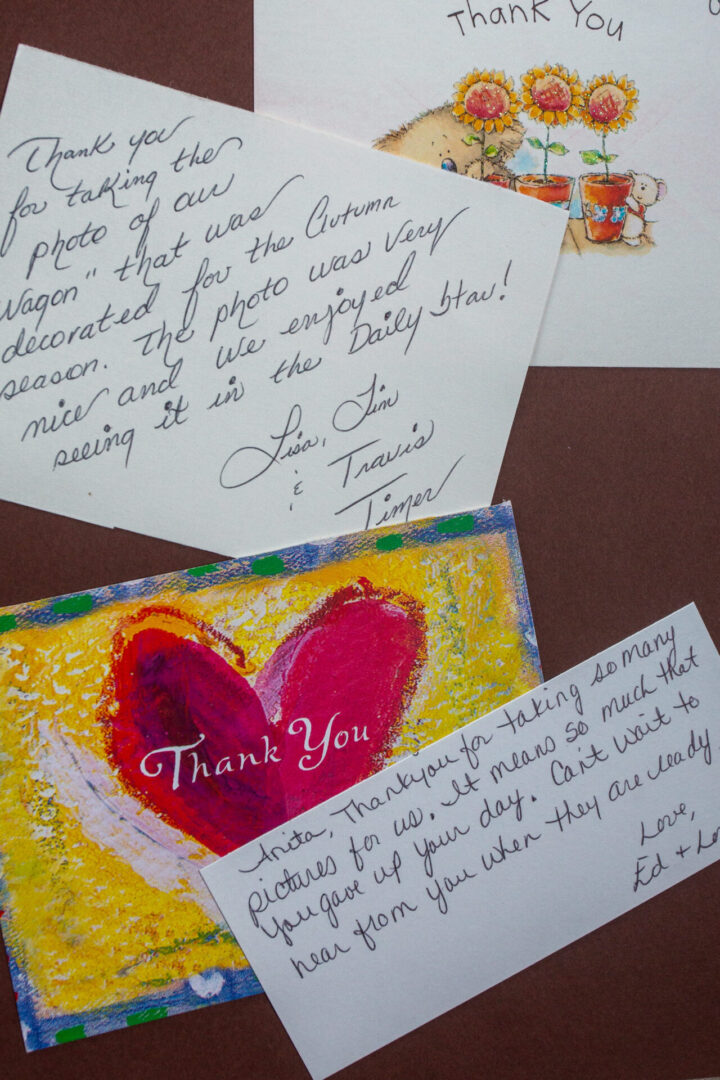 Thank You
Thank you
for taking the
photo of our
Wagon" that was
decorated for the Autumn
season. The photo was very
nice and we enjoyed
seeing it in the Daily Star!
Lisa, Jim
& Travis
Timer
Thank You
Anita, Thankyou for taking so many
pictures for us. It means so much that
You gave up your day. Can't wait to
hear from you when they are ready
Love,
Ed +